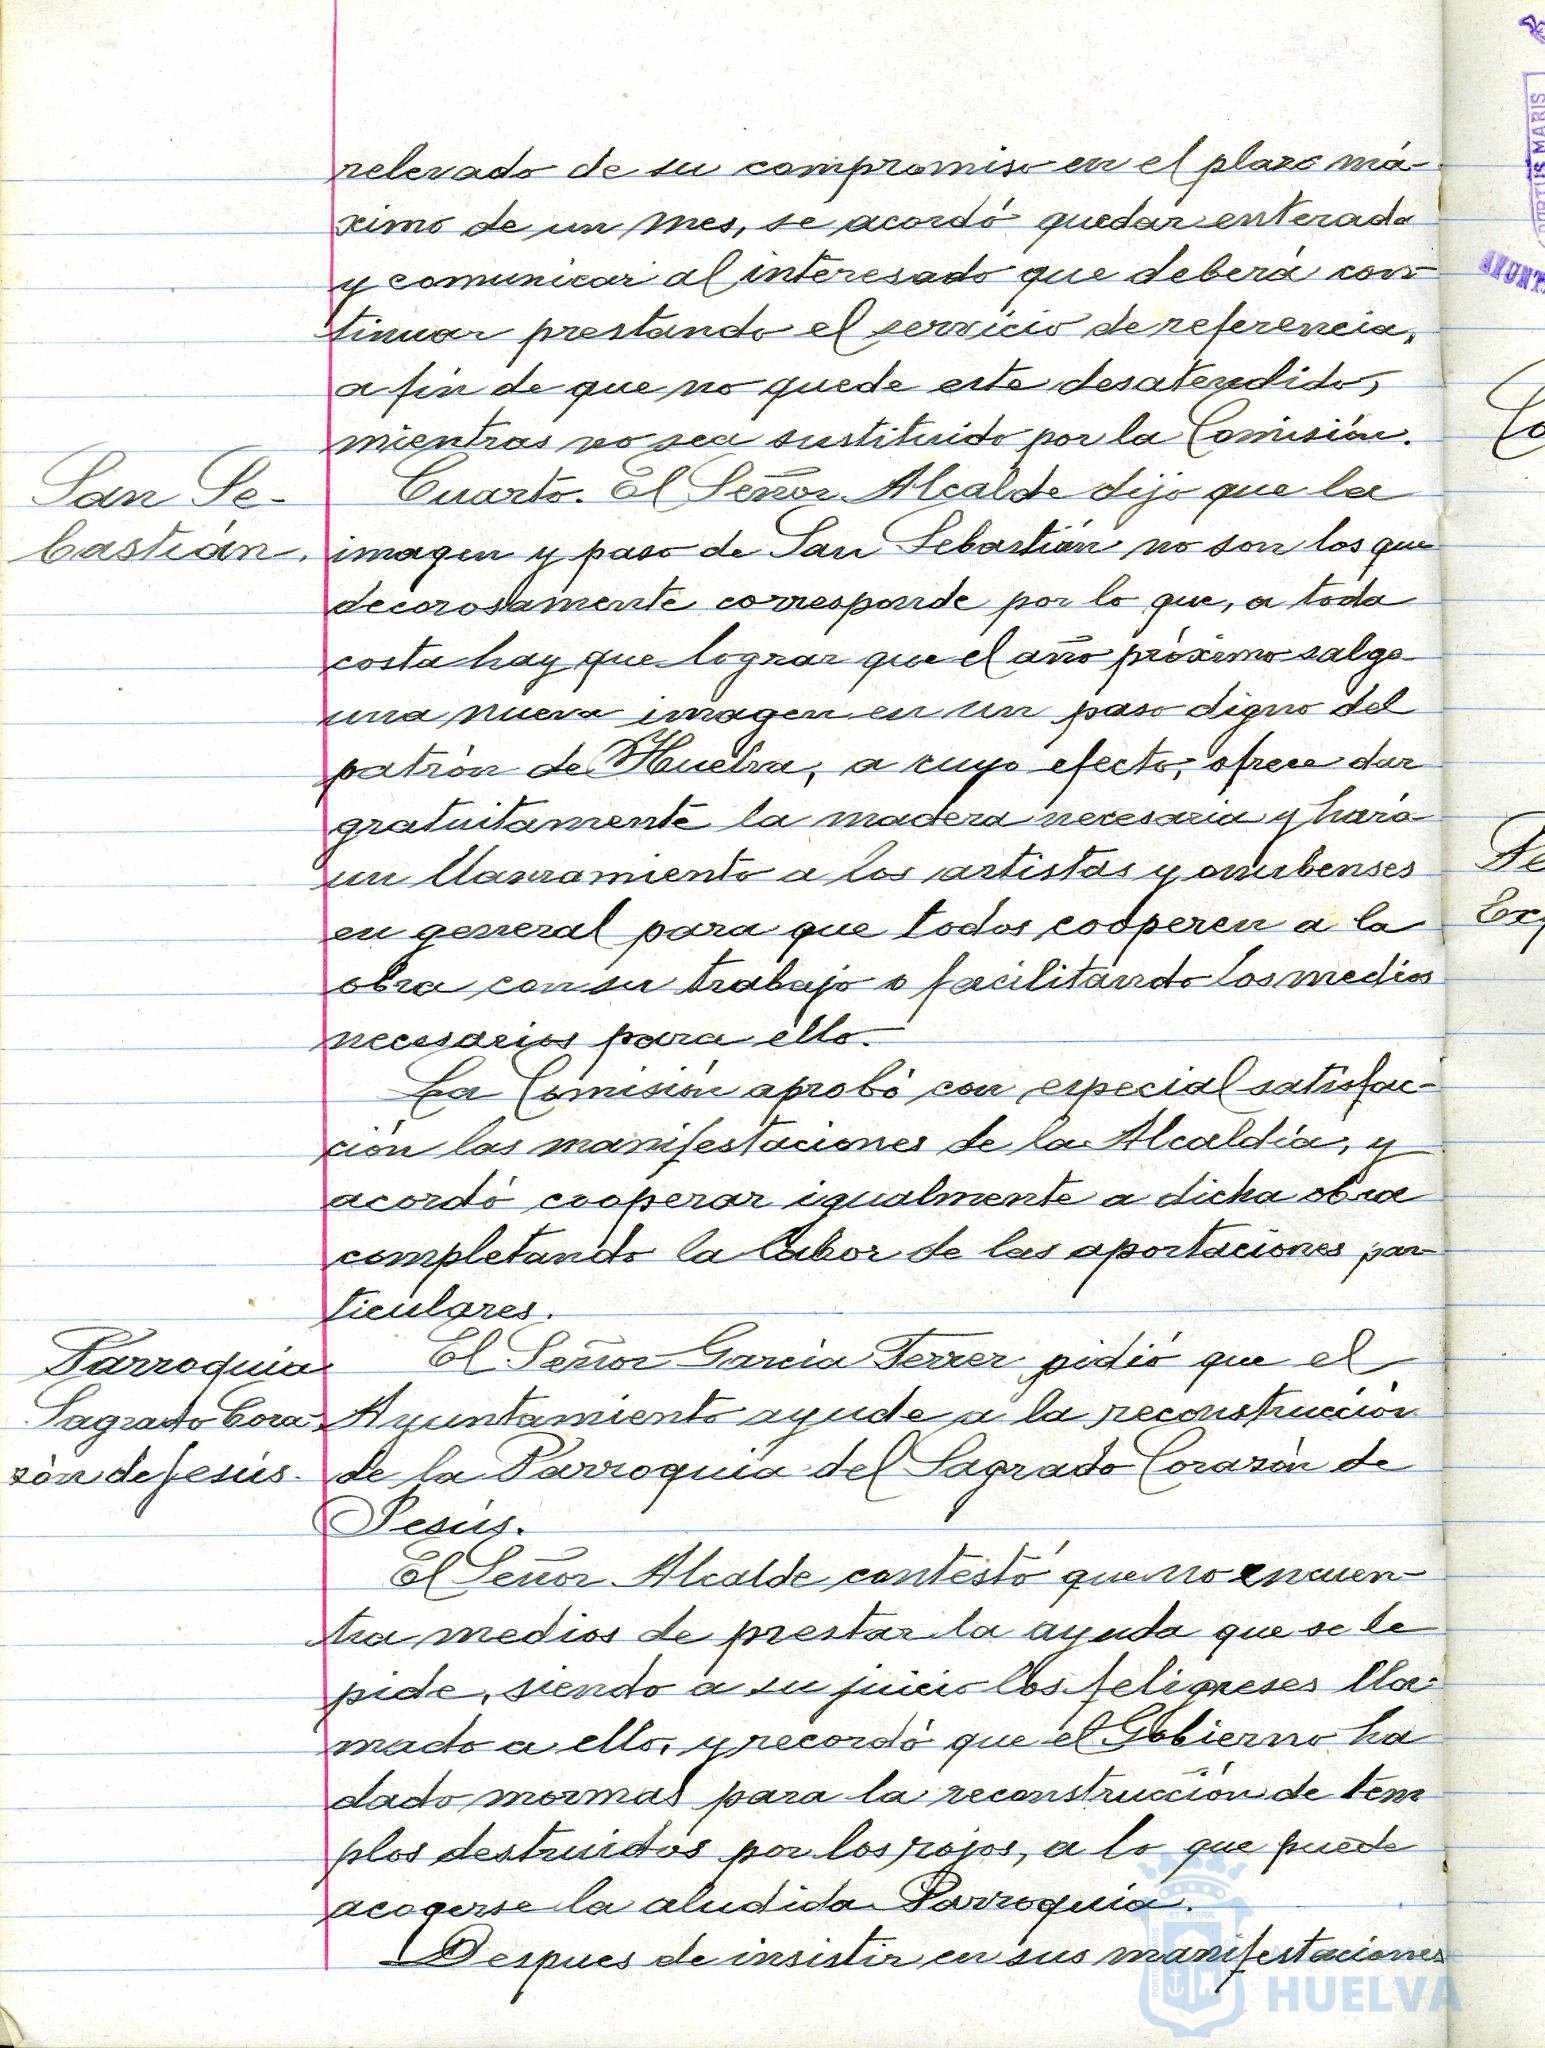 relevado de su compromiso en el plazo má-
ximo de un mes, se acordó quedar enterada
y comunicar al interesado que deberá con-
tinuar prestando el servicio de referencia,
a fin de que no quede este desatendido,
mientras no sea sustituido por la Comisión.
San Se-
bastián.
Cuarto. El Señor Alcalde dijo que la
imagen y paso de San Sebastián no son los que
decorosamente corresponde por lo que, a toda
costa hay que lograr que el año próximo salga
una nueva imagen en un paso digno del
patrón de Huelva, a cuyo efecto, ofrece dar
gratuitamente la madera necesaria y hará
un llamamiento a los artistas y onubenses
en general para que todos cooperen a la
obra con su trabajo o facilitando los medios
necesarios para ello.
La Comisión aprobó con especial satisfac-
ción las manifestaciones de la Alcaldía, y
acordó cooperar igualmente a dicha obra
completando la labor de las aportaciones par-
ticulares.
Parroquia
Sagrado Cora-
zón de Jesús.
El Señor García Ferrer pidió que el
Ayuntamiento ayude a la reconstrucción
de la Parroquia del Sagrado Corazón de
Jesús.
El Señor Alcalde contestó que no encuen-
tra medios de prestar la ayuda que se le
pide, siendo a su juicio los feligreses lla-
mado a ello, y recordó que el Gobierno ha
dado normas para la reconstrucción de tem
plos destruidos por los rojos, a lo que puede
acogerse la aludida Parroquia.
Despues de insistir en sus manifestaciones
HUELVA
PORTUS MARIS
AYUNT
Co